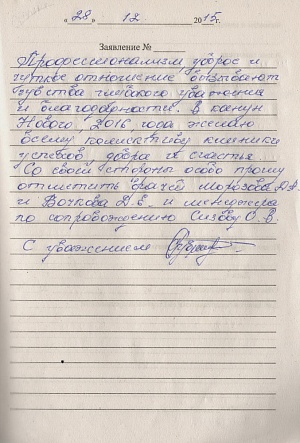 « 28 » 12 2015 г.
Заявление № ____
Профессионализм, доброе и
чуткое отношение вызывают
чувства глубокого уважения
и благодарности. В канун
Нового, 2016, года желаю
всему коллективу клиники
успехов, добра и счастья.
Со своей стороны особо прошу
отметить врачей Морозова Д.В.
и Вочкова Д.Е. и менеджера
по сопровождению Сизову О.В.
С уважением